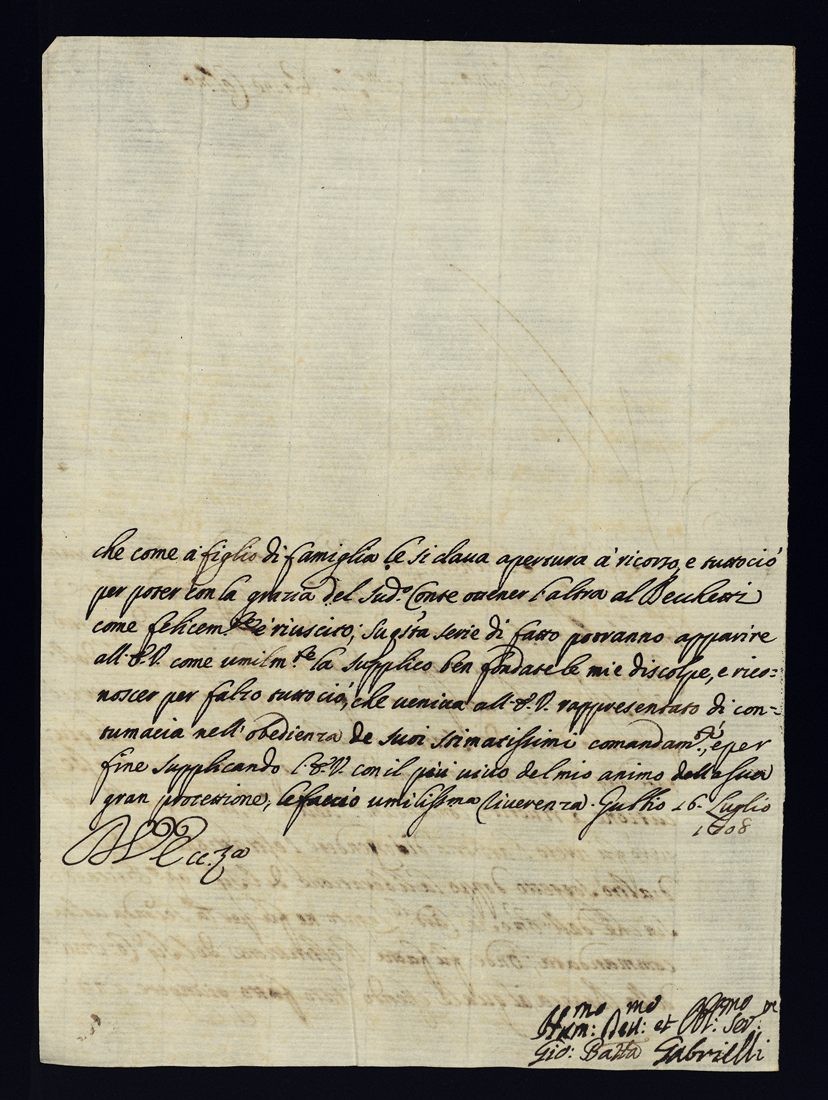 che come à figlio di famiglia le si daua apertura à ricorso, e tuttociò
per poter con la grazia del sud.º Conte ottener l'altra al Becchetti
come felicem.te è riuscito; Su q.sta serie di fatto potranno apparire
all' E.V. come umilm.te la supplico ben fondate le mie discolpe, e rico=
noscer per falso tuttociò, che ueniua all' E.V. rappresentato di con=
tumacia nell' obedienza de suoi stimatissimi comandam.ti, e per
fine supplicando l' E.V. con il più uiuo del mio animo della sua
gran protettione, le faccio umilissima riuerenza. Gubbio 16. Luglio
1708
Di V. Ecc.za
Hum:mo Deu:mo et Obl:mo Ser:re
Gio: Batta Gabrielli